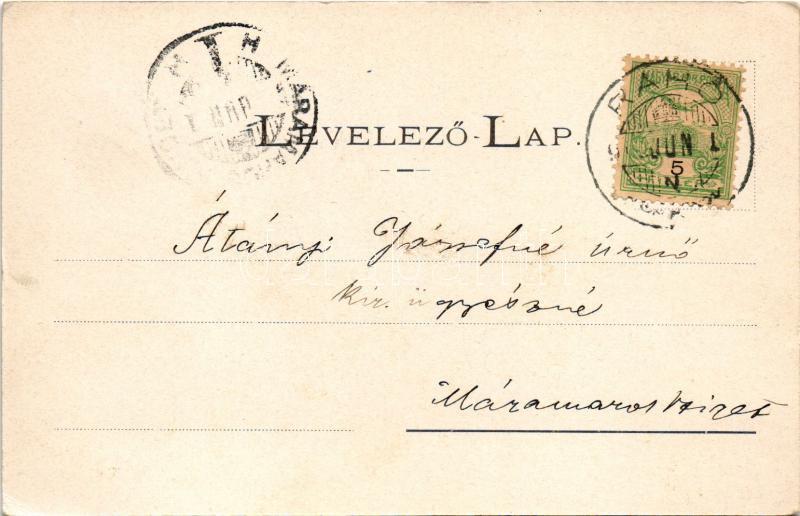 LEVELEZŐ-LAP.
RAHÓ
JUN 1
5
MÁRAMAROS
Átányi Józsefné úrnő
kir. ügyészné
Máramarossziget